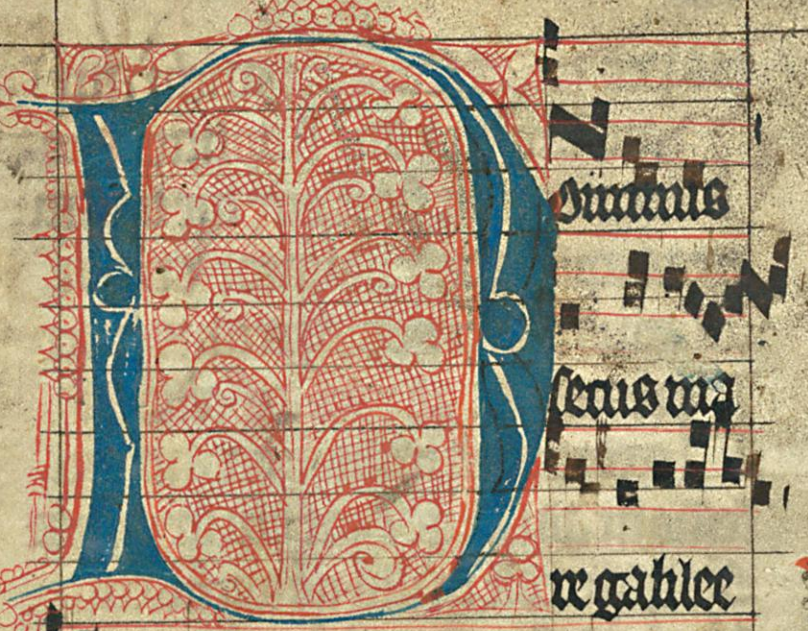 Dominus
secus ma
re galilee